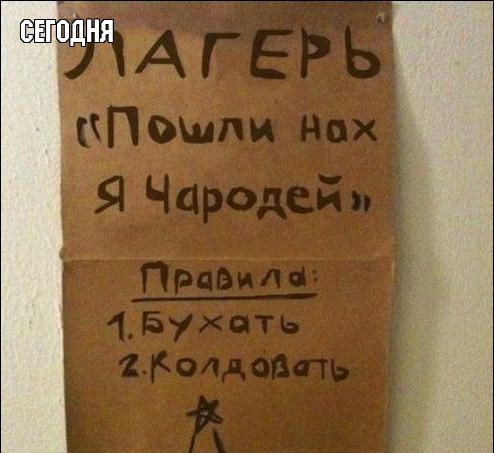 СЕГОДНЯ
ЛАГЕРЬ
«Пошли нах
Я Чародей»
Правила:
1. Бухать
2. Колдовать